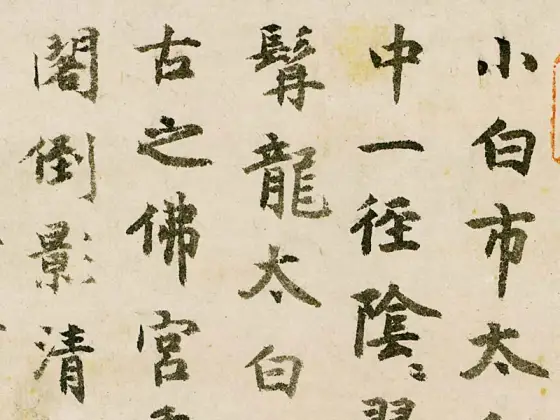 小白市太
中一径陰〻
髯龍太白
古之佛宮
閣倒影清